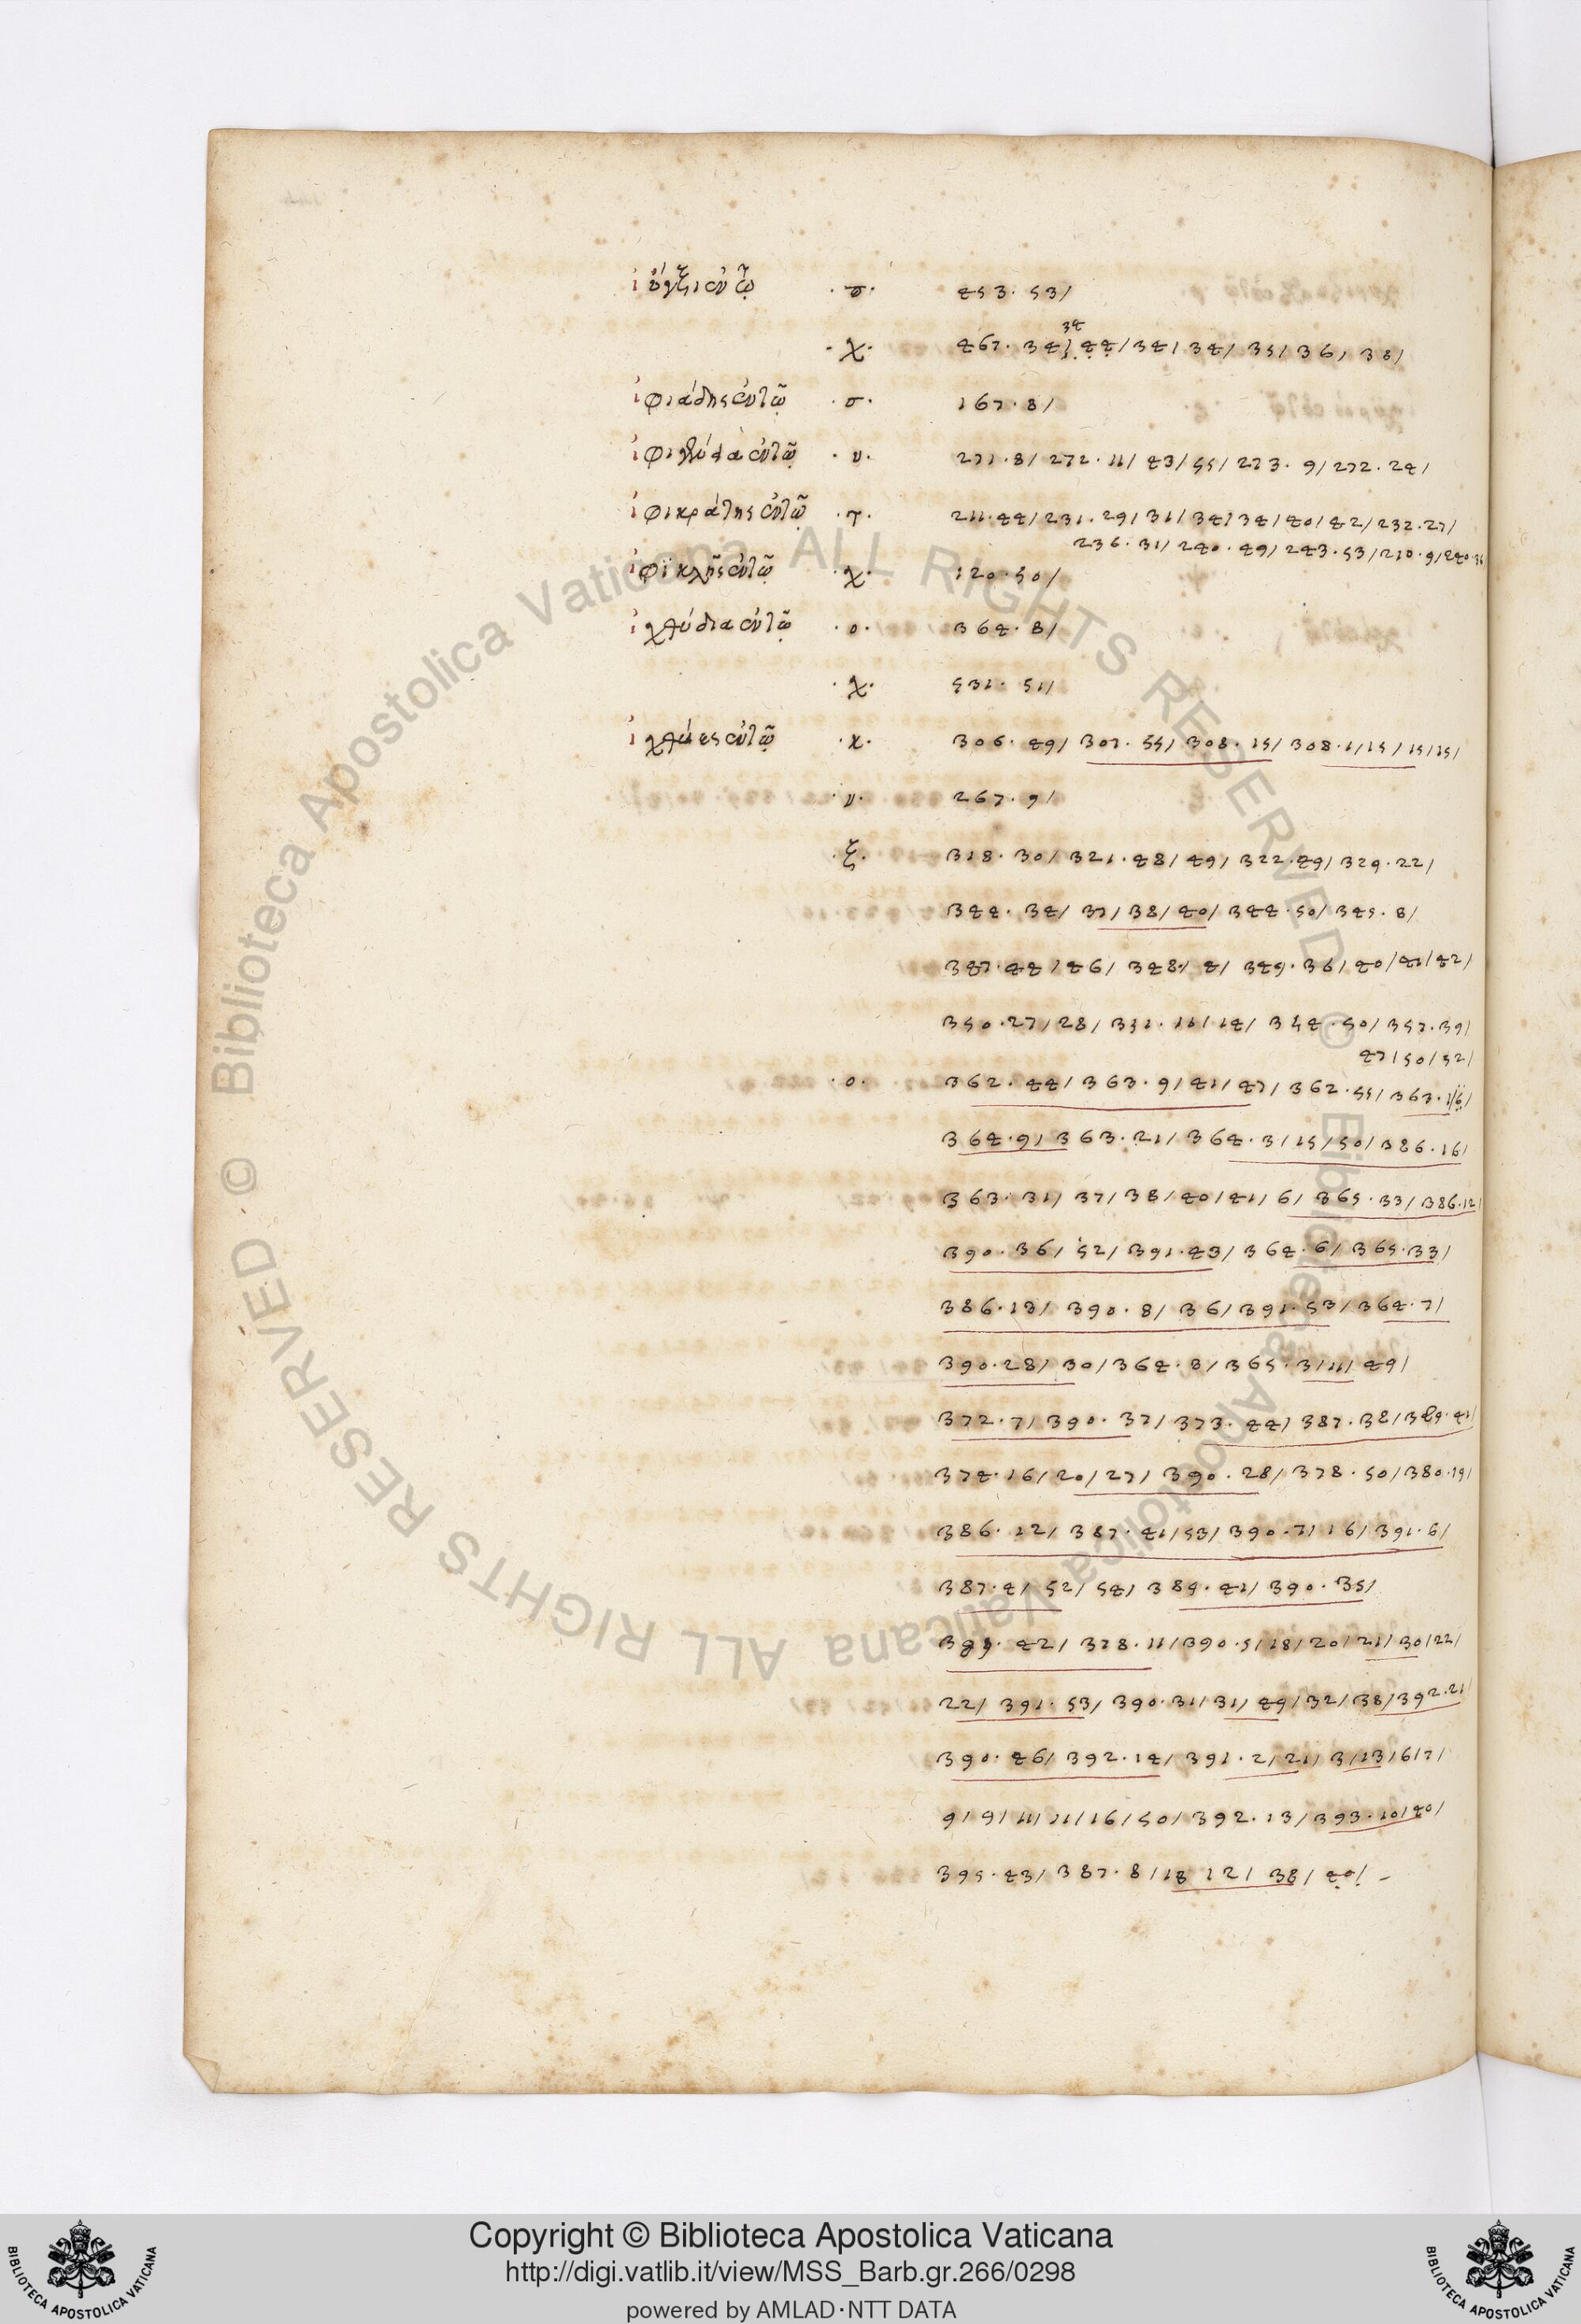 ἰύγξι ἐν τῷ ·σ· 453·53/
34
·χ· 467·34/44/34/34/35/36/38/
ἰφιάδης ἐν τῷ ·σ· 167·8/
ἐν τῷ ·υ· 271·8/272·11/43/55/273·9/272·24/
ἰφικράτης ἐν τῷ ·τ· 211·44/231·29/31/34/34/40/42/232·27/
236·31/240·49/243·53/210·9/240·
ἰφικλῆς ἐν τῷ ·χ· 120·50/
ἰχθύδια ἐν τῷ ·ο· 364·8/
·χ· 531·51/
ἰχθύες ἐν τῷ ·κ· 306·49/307·55/308·15/308·1/15/15/15/
·υ· 267·9/
·ξ· 318·30/321·48/49/322·49/329·22/
344·34/37/38/40/344·50/345·8/
347·44/46/348·4/349·36/40/41/42/
350·27/28/351·11/14/354·50/357·39/
47/50/52/
·ο· 362·44/363·9/41/47/362·55/363·1/6/
364·9/363·21/364·3/15/50/386·16/
363·31/37/38/40/41/6/365·33/386·12/
390·36/52/391·43/364·6/365·33/
386·13/390·8/36/391·53/364·7/
390·28/30/364·8/365·3/11/49/
372·7/390·37/373·44/387·38/389·41/
374·16/20/27/390·28/378·50/380·19/
386·12/387·41/53/390·7/16/391·6/
387·4/52/54/389·41/390·35/
389·42/378·11/390·5/18/20/21/30/22/
22/391·53/390·31/31/49/32/38/392·21/
390·46/392·14/391·2/21/3/13/6/7/
9/9/11/11/16/50/392·13/393·10/40/
395·43/387·8/18 12/38/40/-
Copyright © Biblioteca Apostolica Vaticana
http://digi.vatlib.it/view/MSS_Barb.gr.266/0298
powered by AMLAD·NTT DATA
BIBLIOTECA APOSTOLICA VATICANA
BIBLIOTECA APOSTOLICA VATICANA
© Biblioteca Apostolica Vaticana ALL RIGHTS RESERVED
© Biblioteca Apostolica Vaticana ALL RIGHTS RESERVED